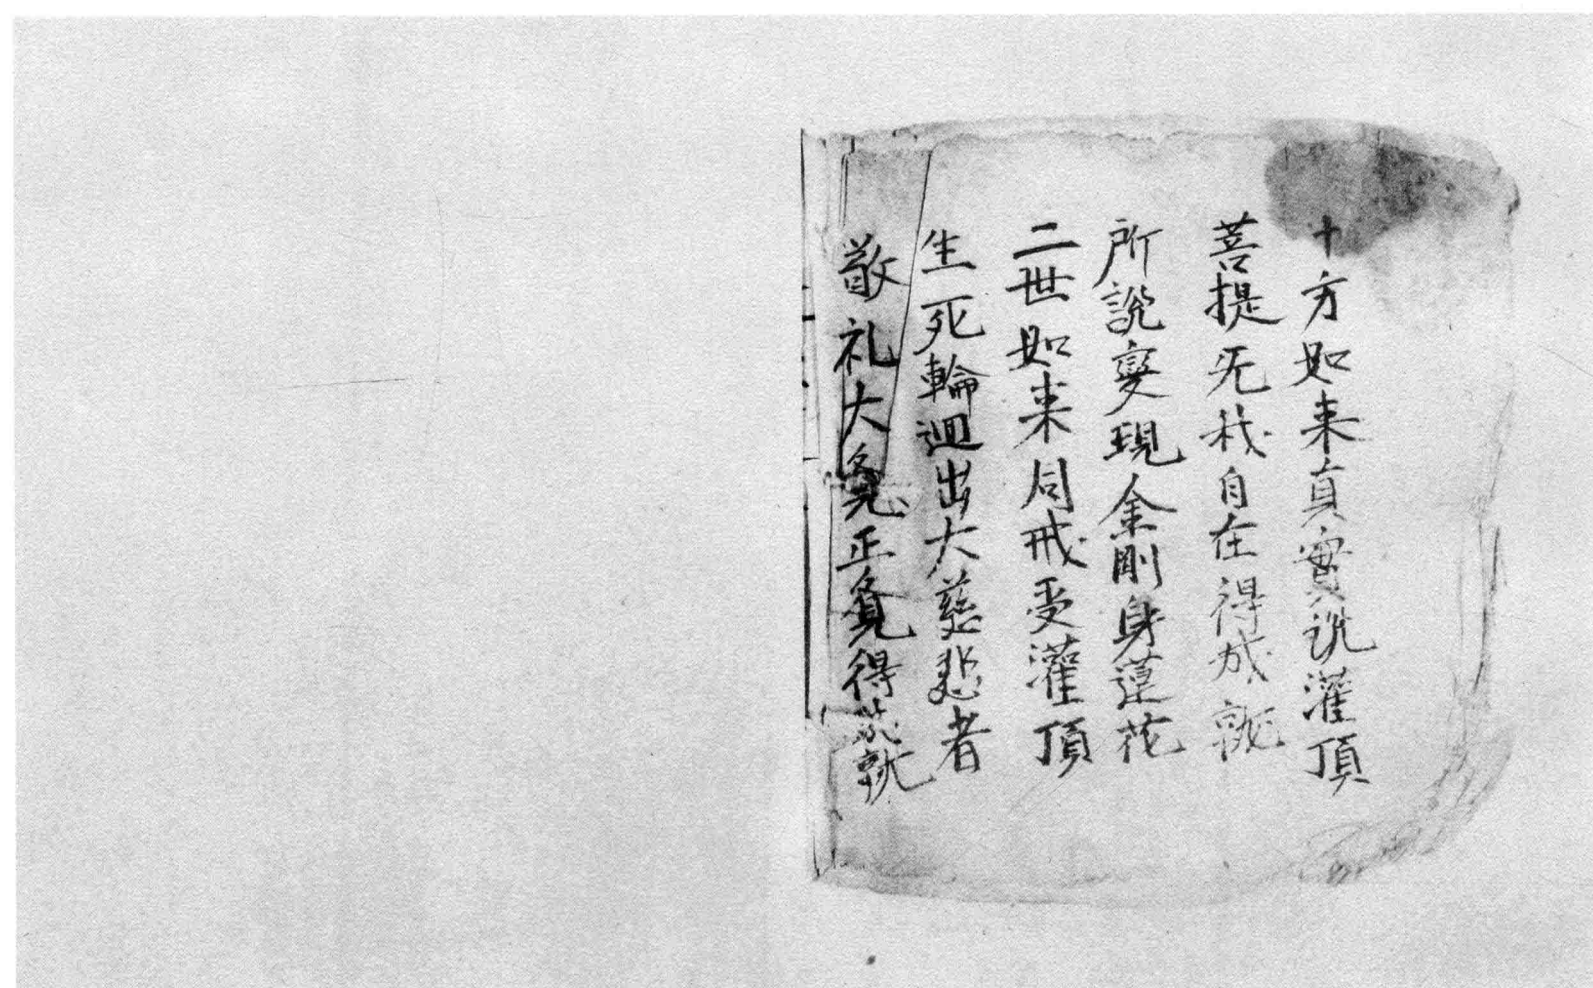 十方如来真實説灌頂
菩提无我自在得成就
所說變現金剛身蓮花
二世如来同戒受灌頂
生死輪迴出大慈悲者
敬礼大覔正覔得成就